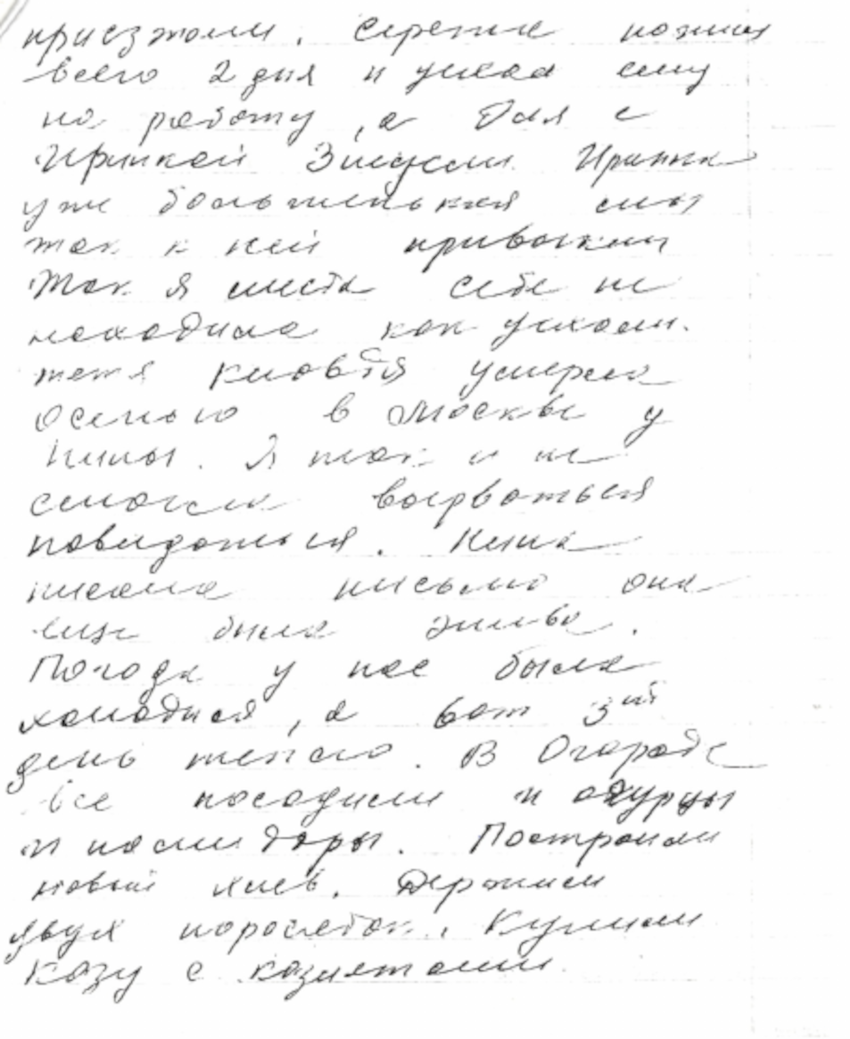 приезжали. Сережа пожил
всего 2 дня и уехал ему
на работу, а Оля с
Иринкой Зиеуем. Иринка
уже большенькая мы
так к ней привыкли
Так я места себе не
находила как уехали.
тетя Клавдя умерла
осенью в Москве у
Нины. Я так и не
смогла вырваться
повидаться. Нина
писала письмо она
еще была жива.
Погода у нас была
холодная, а вот 3ий
день тепло. В Огороде
все посадили и огурцы
и помидоры. Построили
новый хлев. Держим
двух поросяток. Купили
козу с козлятами.